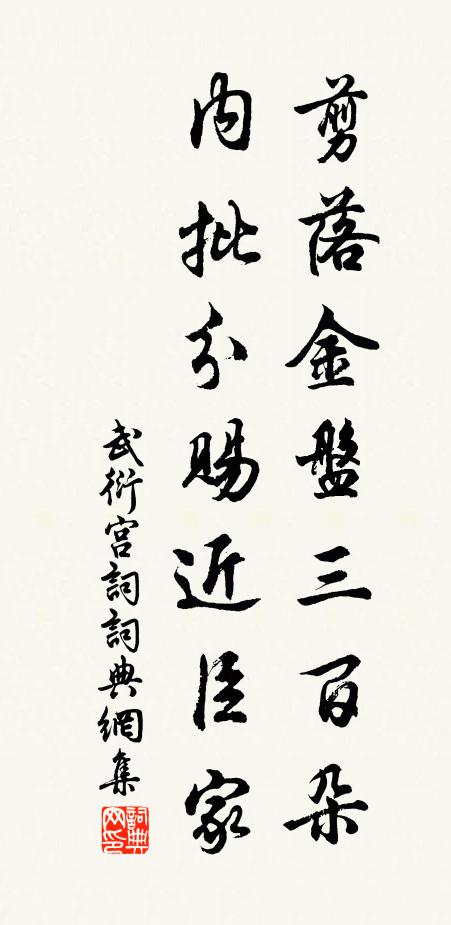 剪落金盤三百朵
內批分賜近臣家
武衍宮詞詞典網集
詞典網印